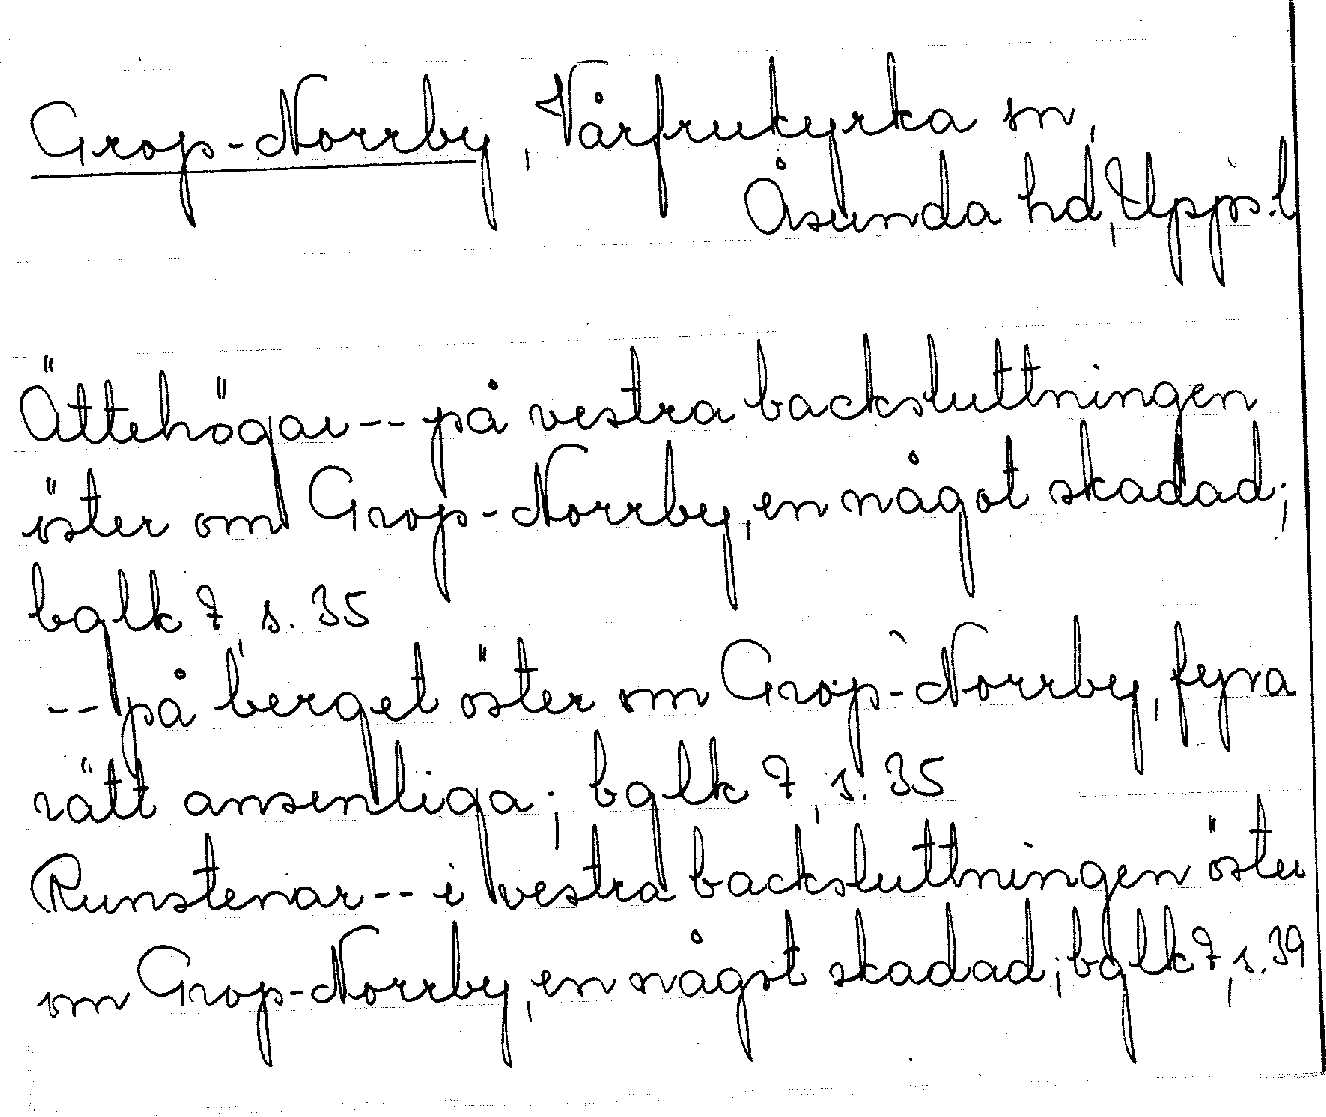 Grop-Norrby, Vårfrukyrka sn,
Åsunda hd, Upps.l
Ättehögar -- på vestra backsluttningen
öster om Grop-Norrby, en något skadad;
bglk 7, s. 35
-- på berget öster om Grop-Norrby, fyra
rätt ansenliga; bglk 7, s. 35
Runstenar -- i vestra backsluttningen öster
om Grop-Norrby, en något skadad; bglk 7, s. 39